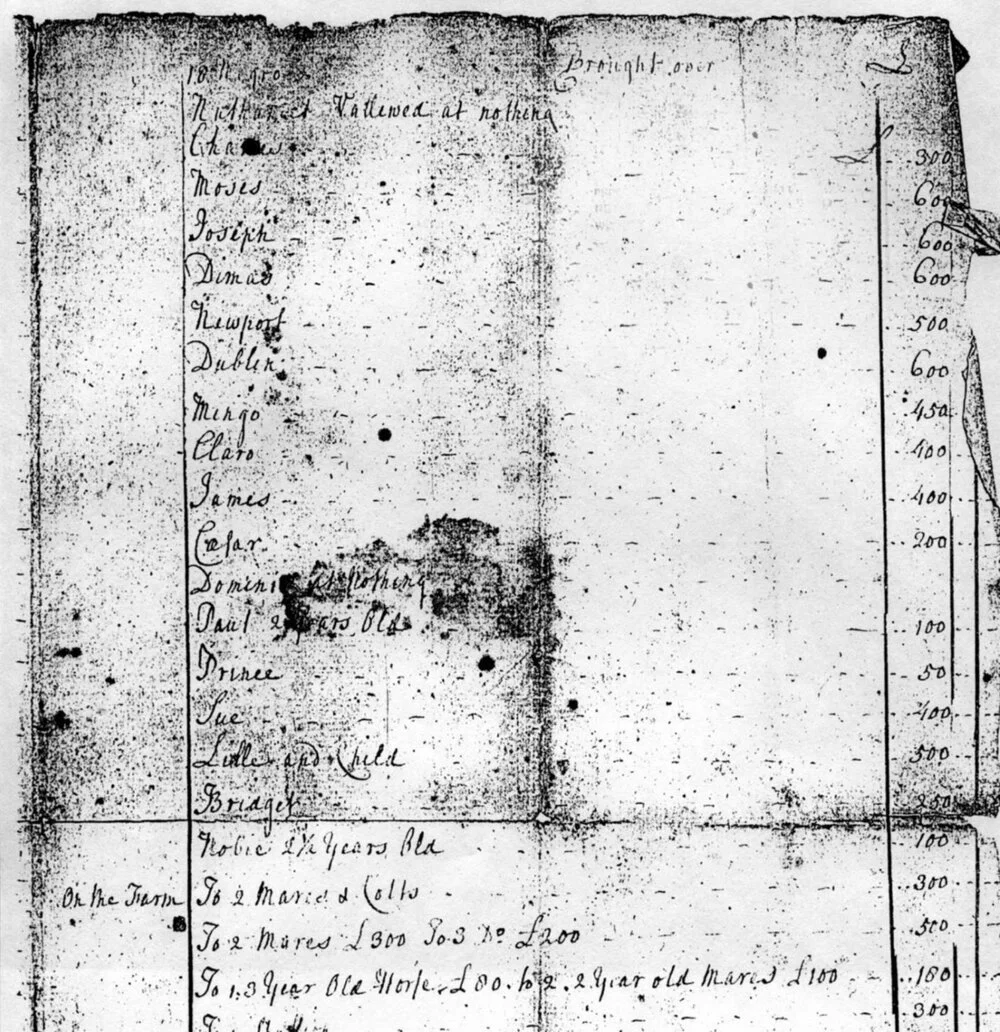 Brought over £
18 Negro
Vallewed at nothing
Cha 300
Moses 600
Joseph 600
Dimas 600
Newport 500
Dublin 600
Mingo 450
Claro 400
James 400
Cæsar 200
Domini at Nothing
Paul 2 Years Old 100
Prince 50
Sue 400
and Child 500
Bridget 250
2½ Years Old 100
On the Farm To 2 Mares & Colts 300
To 2 Mares £300 To 3 Do £200 500
To 1. 3 Year Old Horse £80. to 2. 2 Year old Mares £100 180
300